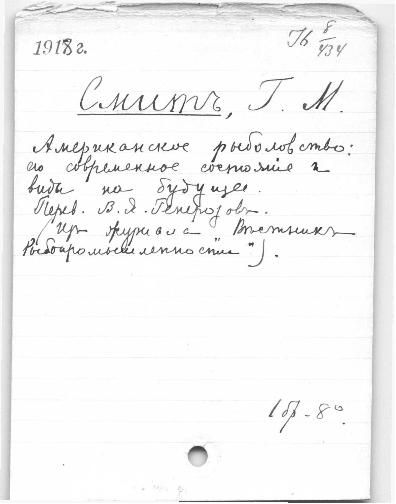 1918 г.
IЬ 8/434
Смитъ, Г. М.
Американское рыболовство:
его современное состояніе и
виды на будущее.
Перев. В. Я. Генерозовъ.
(Изъ журнала "Вѣстникъ
Рыбопромышленности").
1 бр - 8º.